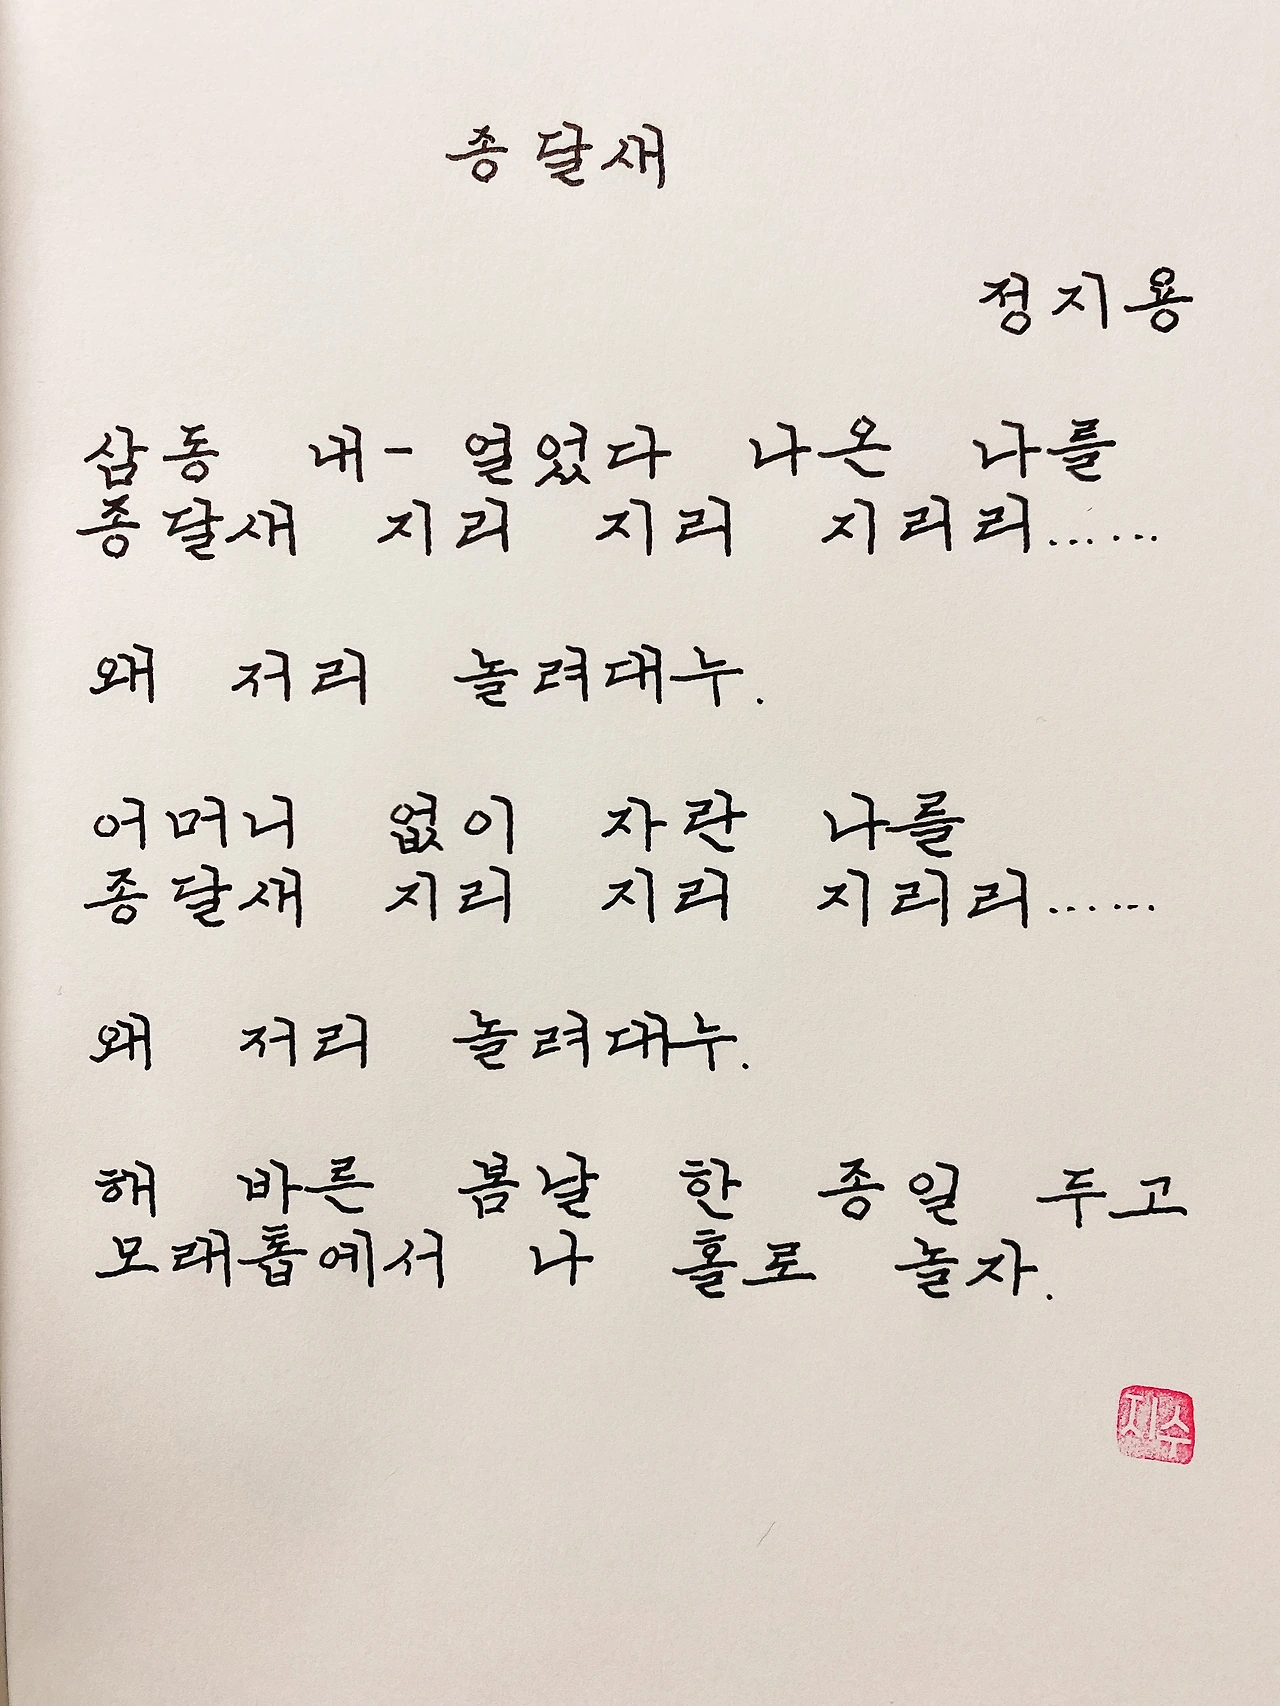 종달새
정지용
삼동 내- 열었다 나온 나를
종달새 지리 지리 지리리……
왜 저리 놀려대누.
어머니 없이 자란 나를
종달새 지리 지리 지리리……
왜 저리 놀려대누.
해 바른 봄날 한 종일 두고
모래톱에서 나 홀로 놀자.
지수